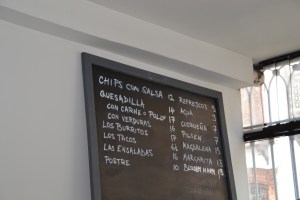 CHIPS CON SALSA 12 REFRESCOS 3
QUESADILLA 14 AGUA
CON CARNE O POLLO 17
CON VERDURAS 16 CUSQUEÑA 7
LOS BURRITOS 17 PILSEN 7
LOS TACOS 17 MAGDALENA 13
LAS ENSALADAS 16 MARGARITA 13
POSTRE 10 BLOODY MARY 13